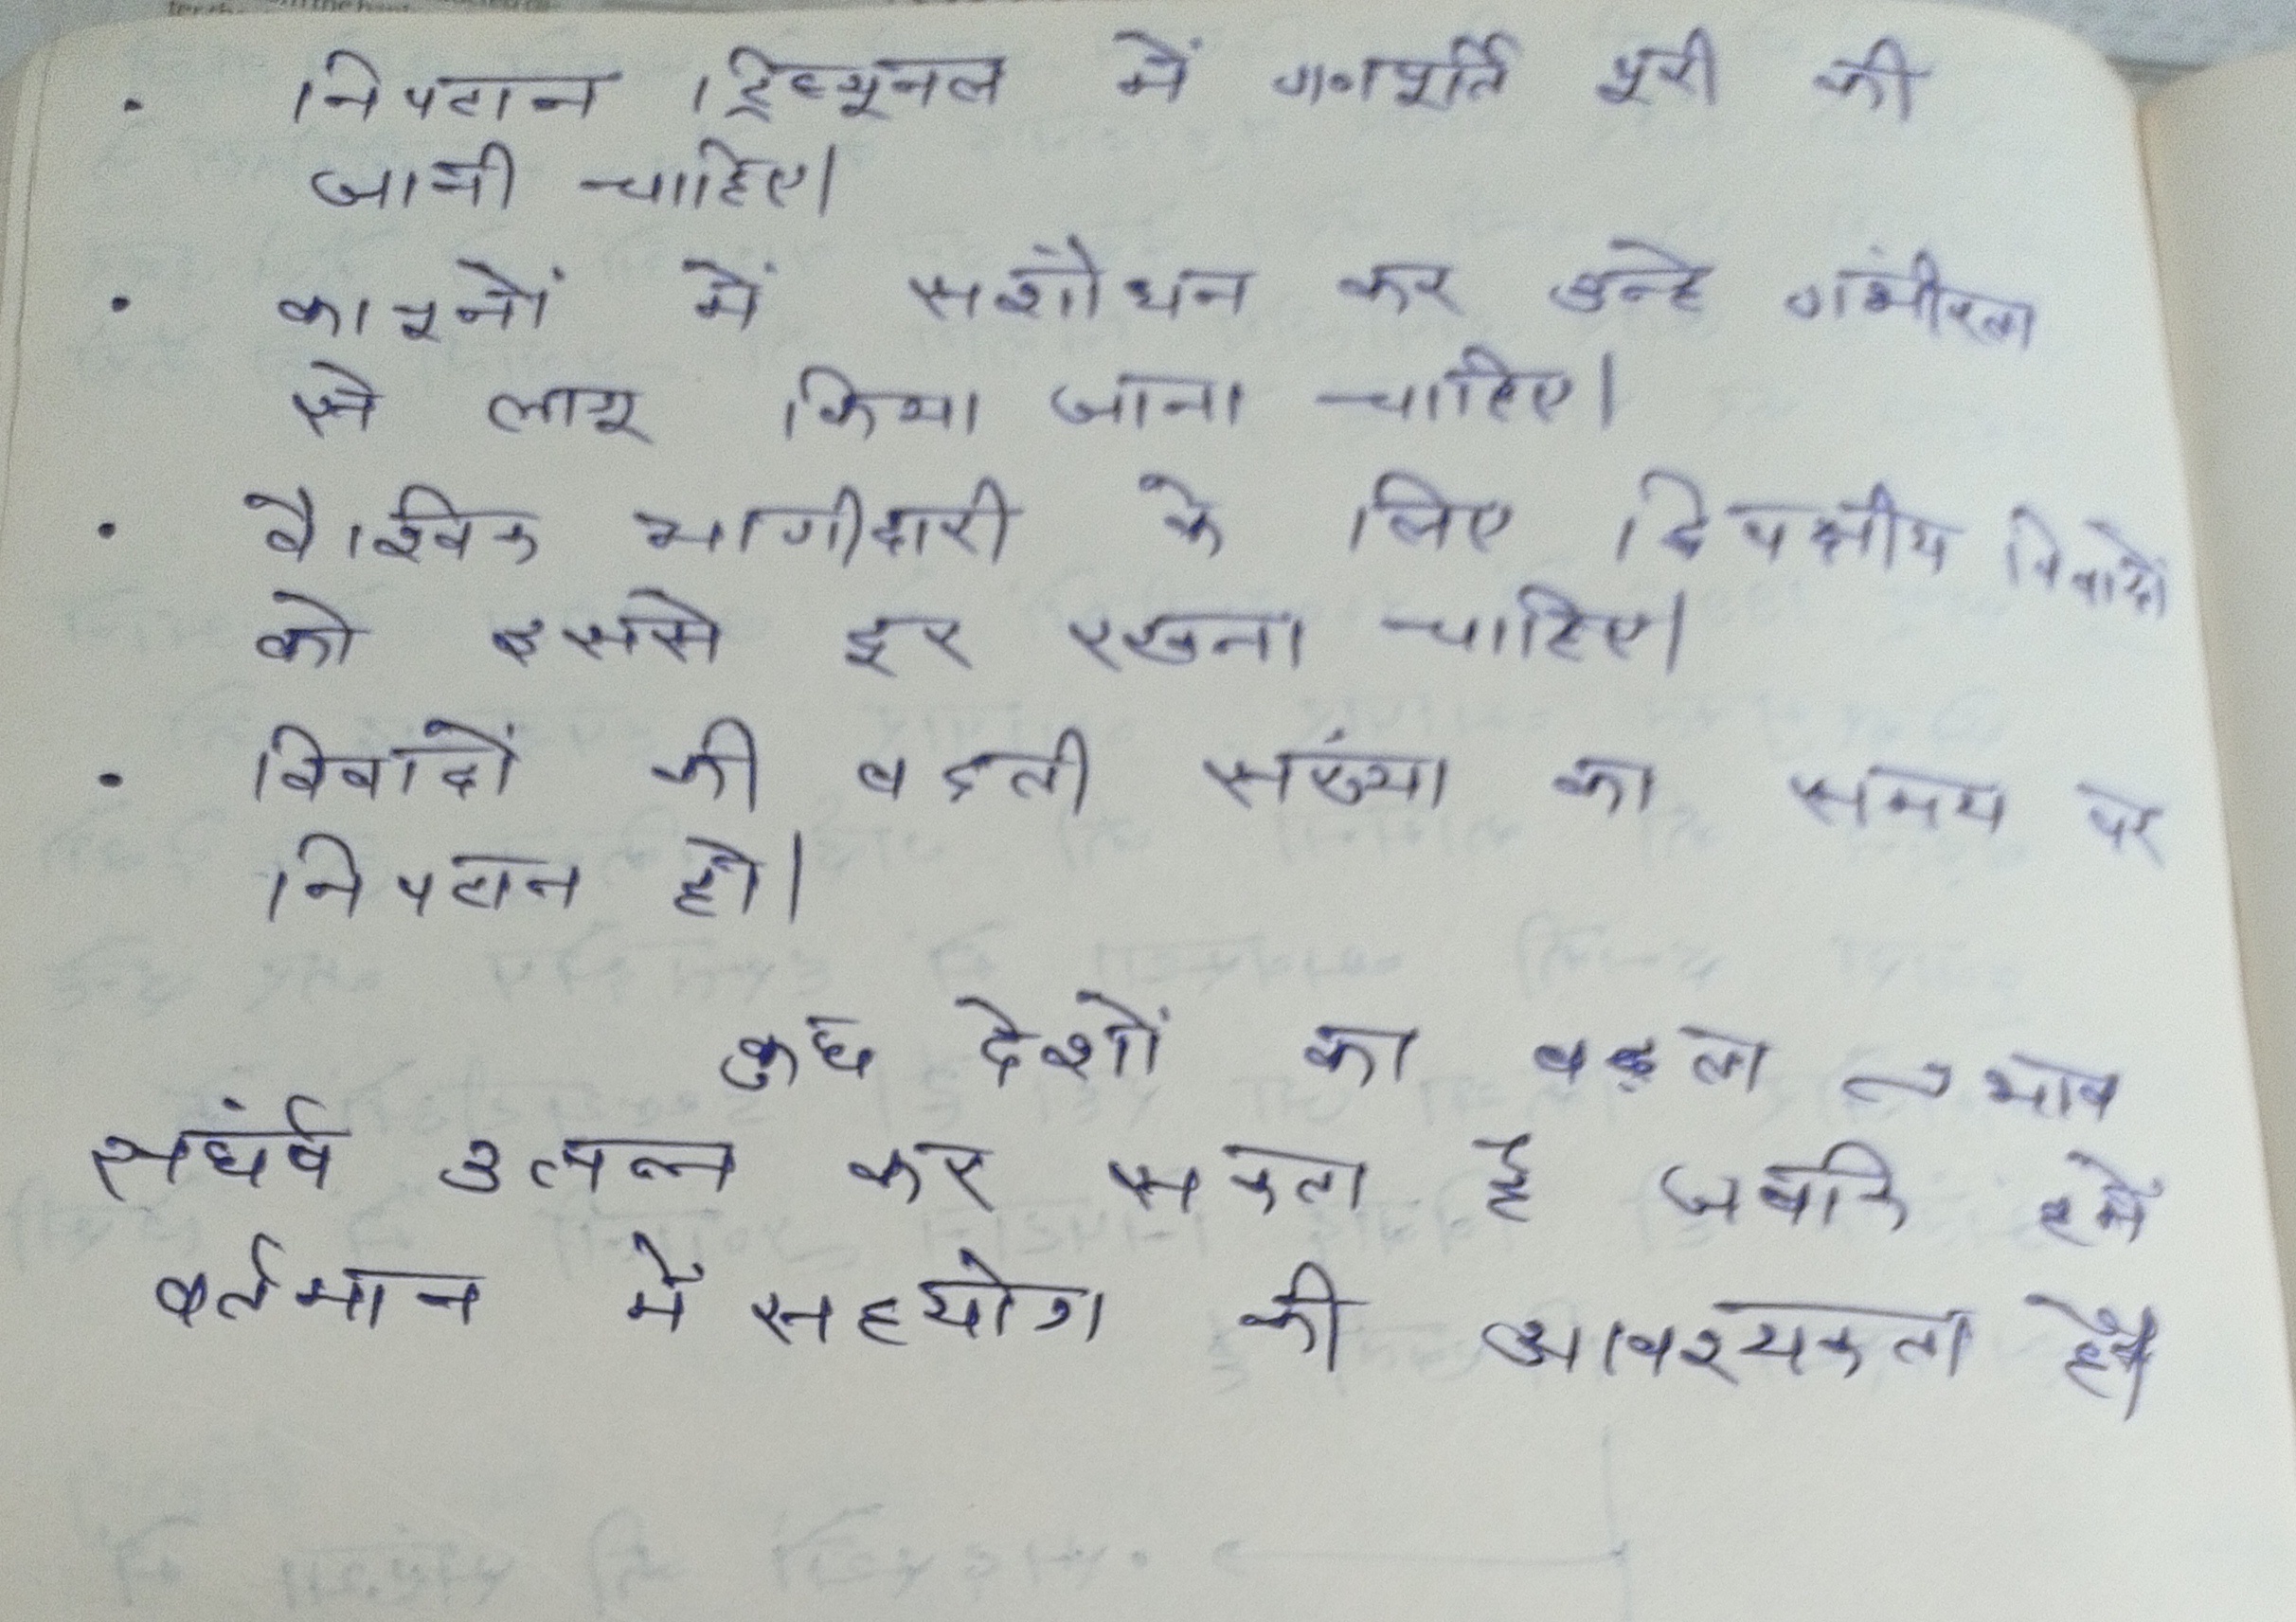 • निपटान ट्रिब्यूनल में गणपूर्ति पूरी की
जानी चाहिए।
• कानूनों में सशोंधन कर उन्हे गंभीरता
से लागू किया जाना चाहिए।
• वैश्विक भागीदारी के लिए द्विपक्षीय विवादों
को इससे दूर रखना चाहिए।
• विवादों की बढ़ती सख्ंया का समय पर
निपटान हो।
कुछ देशों का बढ़ता
सघंर्ष उत्पन्न कर सकता है जबकि हमें
वर्तमान में सहयोग की आवश्यकता है।